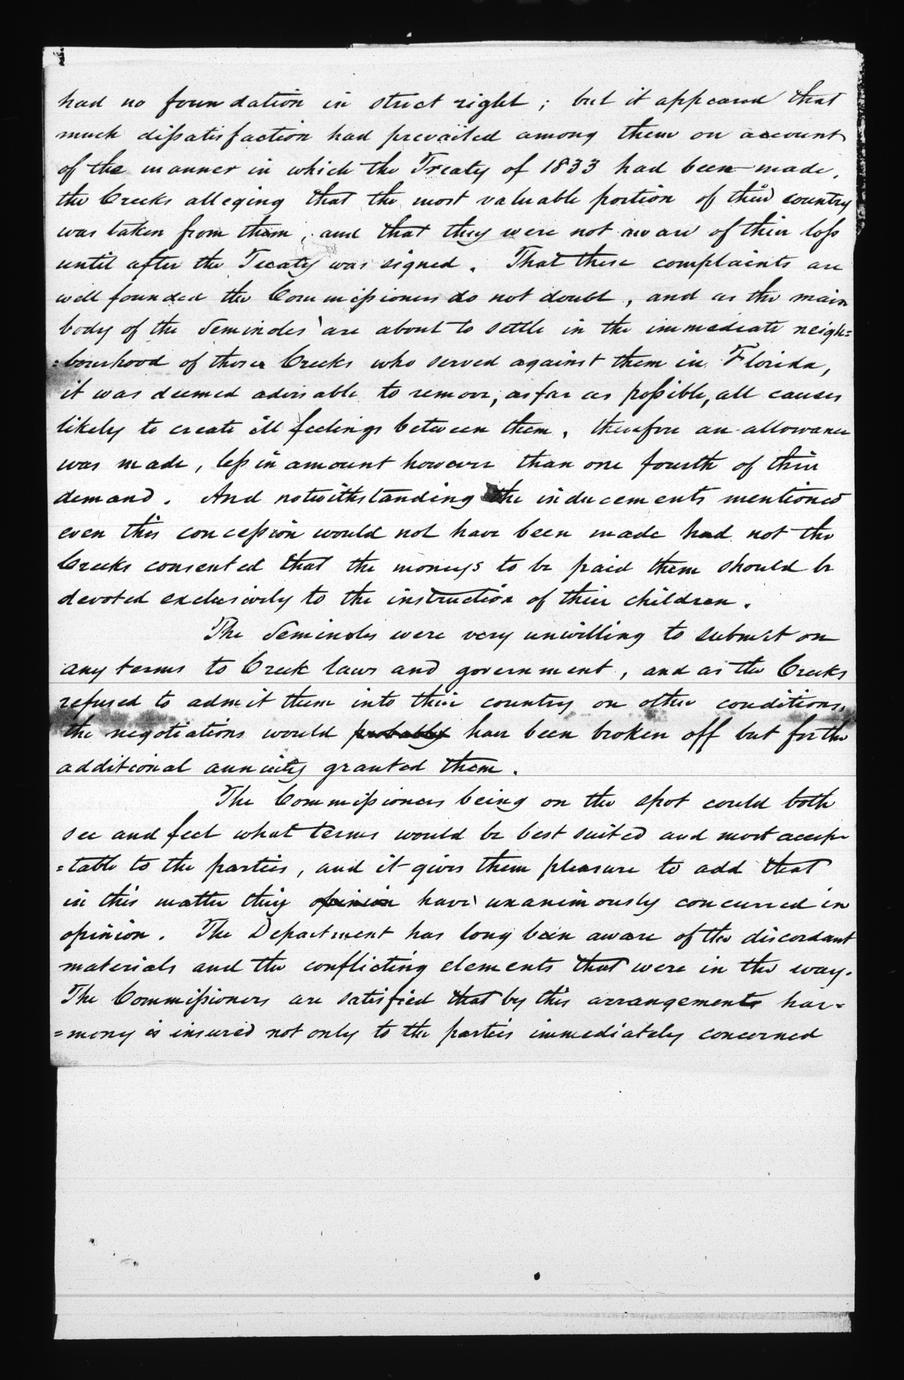 had no foundation in strict right; but it appeared that
much dissatisfaction had prevailed among them on account
of the manner in which the Treaty of 1833 had been made,
the Creeks alleging that the most valuable portion of their country
was taken from them, and that they were not aware of their loss
until after the Treaty was signed. That these complaints are
well founded the Commissioners do not doubt, and as the main
body of the Seminoles are about to settle in the immediate neigh=
=bourhood of those Creeks who served against them in Florida,
it was deemed advisable to remove, as far as possible, all causes
likely to create ill feelings between them, therefore an allowance
was made, less in amount however than one fourth of their
demand. And notwithstanding the inducements mentioned
even this concession would not have been made had not the
Creeks consented that the moneys to be paid them should be
devoted exclusively to the instruction of their children.
The Seminoles were very unwilling to submit on
any terms to Creek laws and government, and as the Creeks
refused to admit them into their country on other conditions,
the negotiations would probably have been broken off but for the
additional annuity granted them.
The Commissioners being on the spot could both
see and feel what terms would be best suited and most accep-
=table to the parties, and it gives them pleasure to add that
in this matter they opinion have unanimously concurred in
opinion. The Department has long been aware of the discordant
materials and the conflicting elements that were in the way.
The Commissioners are satisfied that by this arrangements har=
=mony is insured not only to the parties immediately concerned